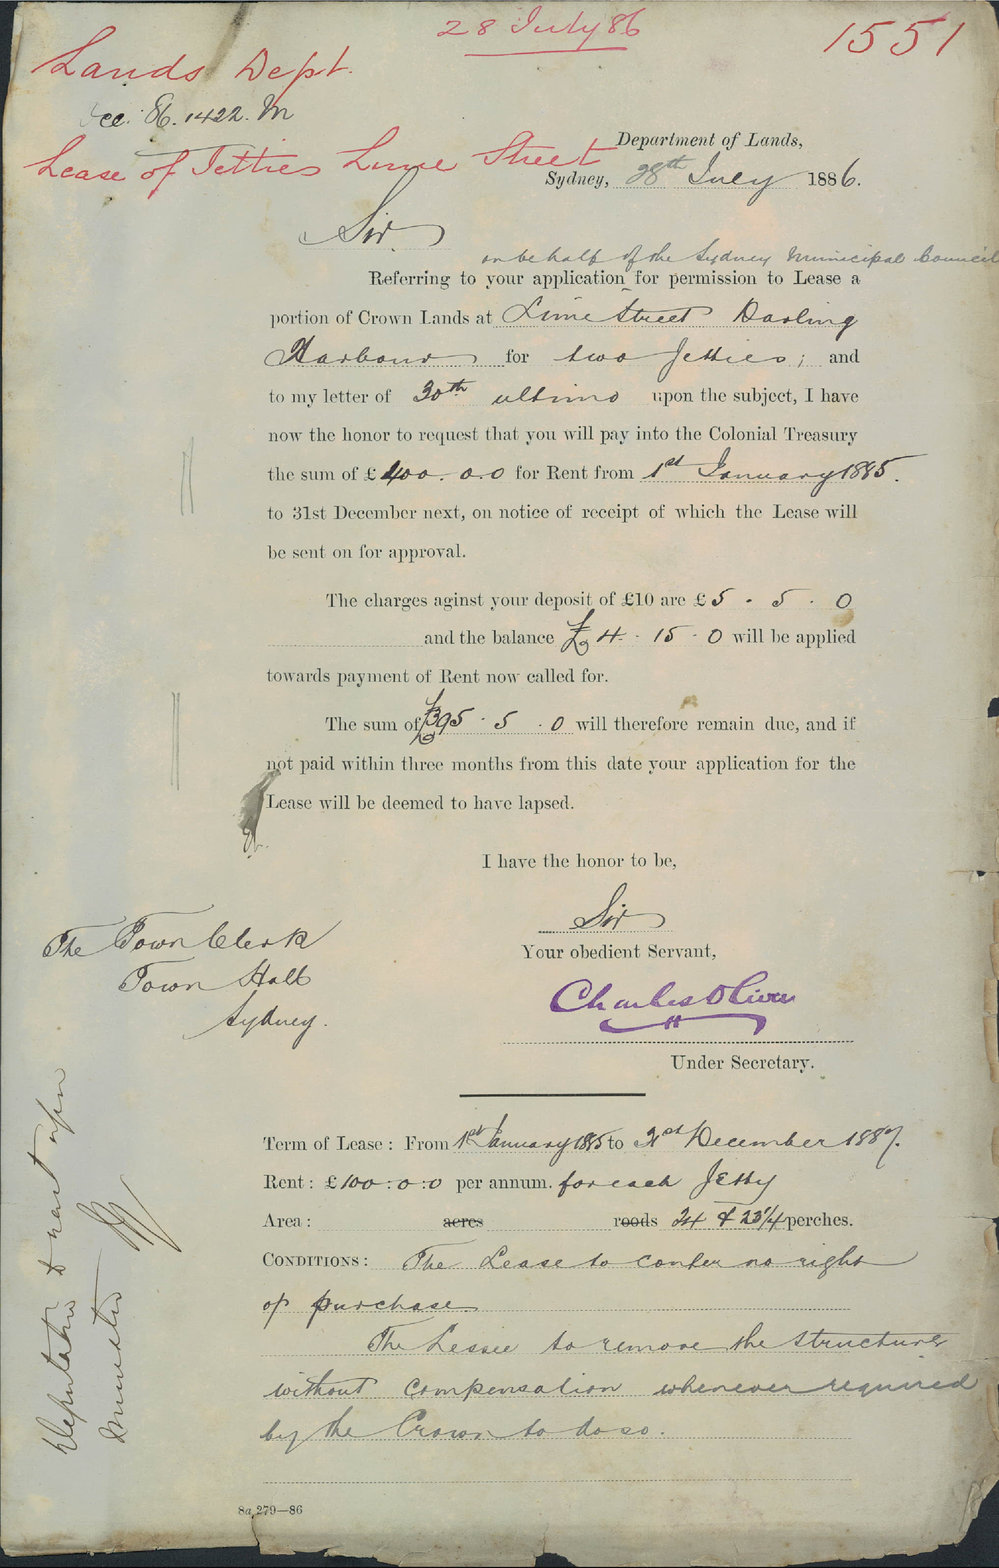 28 July 86
1551
Lands Dept.
86. 1422. M
Lease of Jetties Lime Street
Department of Lands,
Sydney, 28th July 1886.
Sir
on behalf of the Sydney Municipal Council
Referring to your application for permission to Lease a
portion of Crown Lands at Lime Street Darling
Harbour for two Jetties; and
to my letter of 30th ultimo upon the subject, I have
now the honor to request that you will pay into the Colonial Treasury
the sum of £400.0.0 for Rent from 1st January 1885.
to 31st December next, on notice of receipt of which the Lease will
be sent on for approval.
The charges aginst your deposit of £10 are £5 . 5 . 0
and the balance £4 . 15 . 0 will be applied
towards payment of Rent now called for.
The sum of £395 . 5 . 0 will therefore remain due, and if
not paid within three months from this date your application for the
Lease will be deemed to have lapsed.
I have the honor to be,
Sir
Your obedient Servant,
Charles Oliver
Under Secretary.
The Town Clerk
Town Hall
Sydney.
Term of Lease: From 1st January 1885 to 31st December 1887.
Rent: £100:0:0 per annum. for each Jetty
Area: acres roods 24 & 23 1/4 perches.
CONDITIONS: The Lease to confer no right
of purchase.
The Lessee to remove the structures
without compensation whenever required
by the Crown to do so.
8a 279—86
Deputation to wait upon
Minister